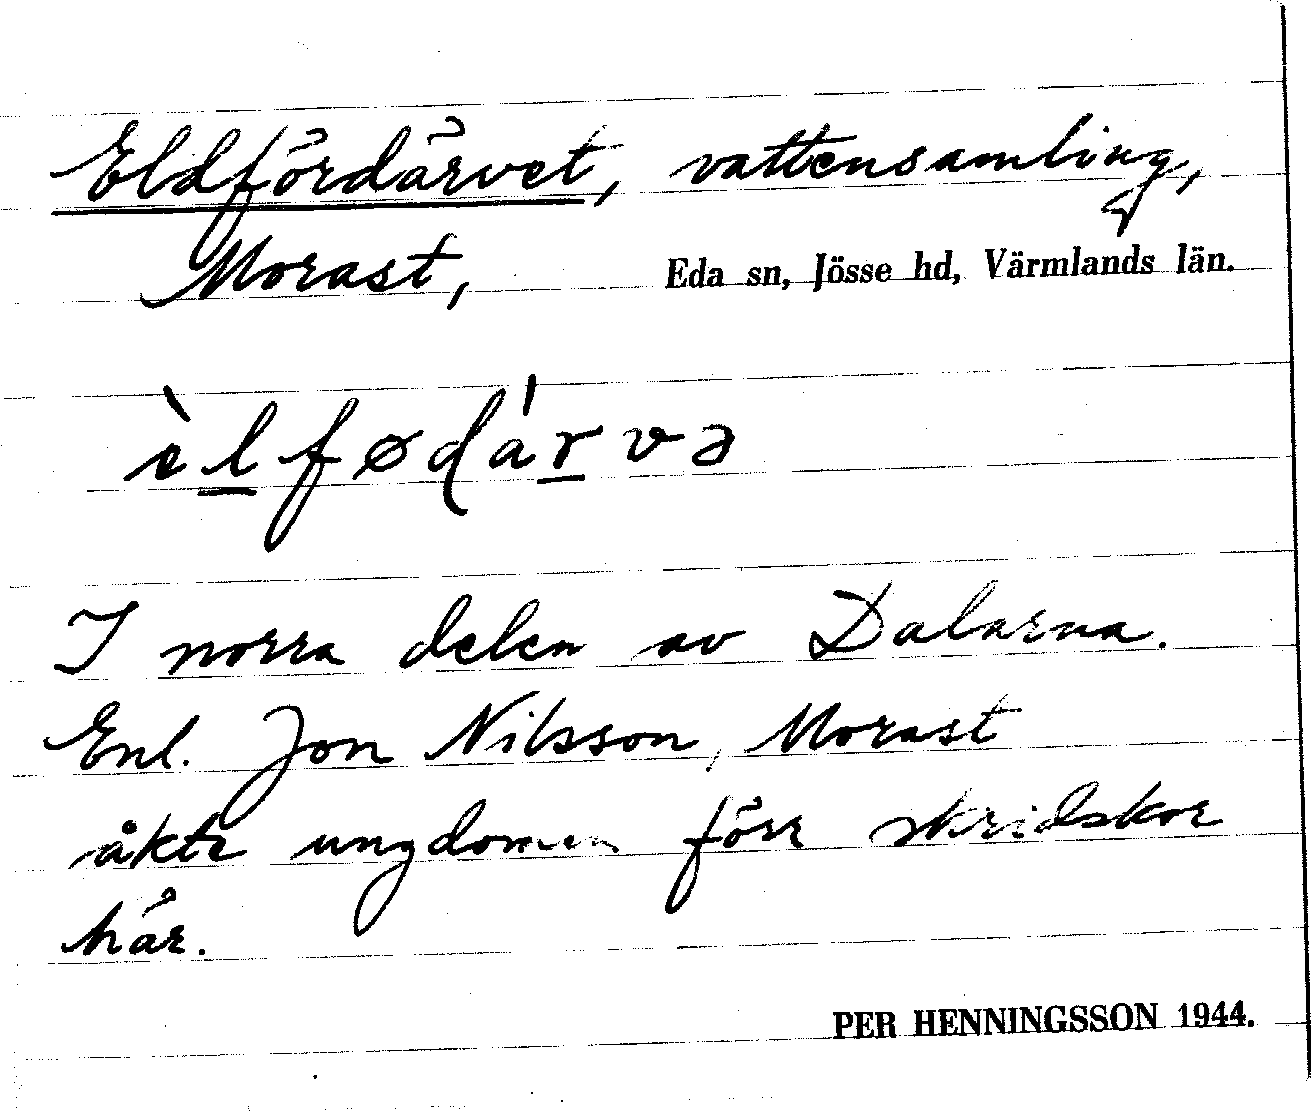 Eldfördärvet, vattensamling,
Morast, Eda sn, Jösse hd, Värmlands län.
èlfødárvə
I norra delen av Dalarna.
Enl. Jon Nilsson, Morast
åkte ungdomen förr skridskor
här.
PER HENNINGSSON 1944.